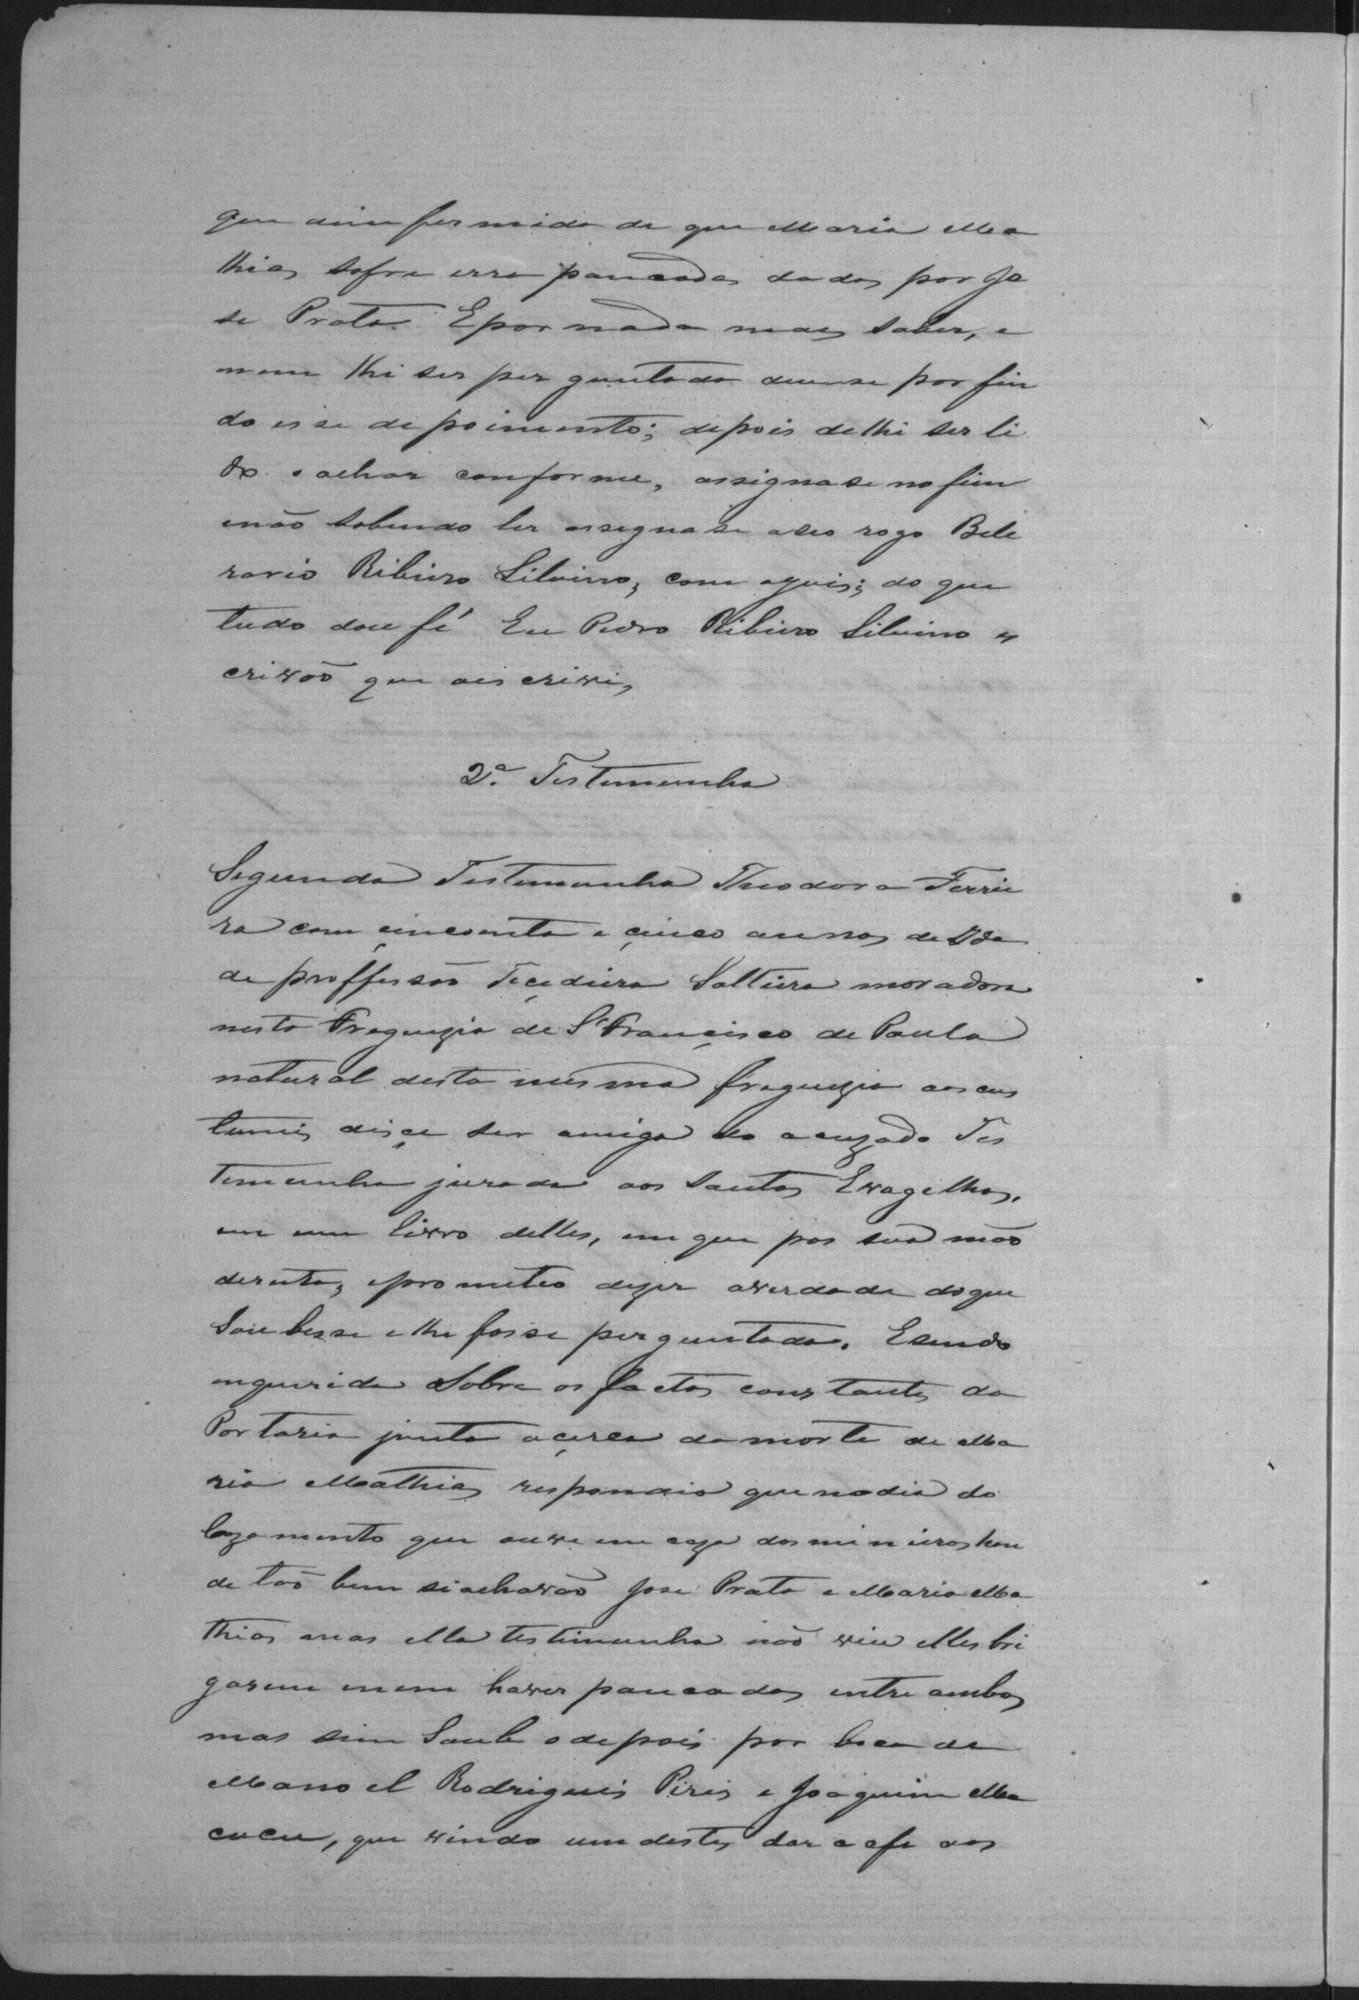 que dinfermida de que Maria Ma
thias sofre erra pancadas dadas por Jo
se Prata. E por nada mais saber, e
nem lhi ser per guntado deu-se por fin
do esse depoimento; depois delhi ser li
do e achar conforme, assigna se no fim
enão sabendo ler assignase aseo rogo Beli
zario Ribiiro Silvino, com ojuis; do que
tudo dou fé Eu Pedro Ribiiro Silvino es
crivão que aiscrivi,
2ª. Testemunha
Segunda Testemunha Theodora Ferrie
ra com çincoenta e çinco annos de Ida
de proffissão Teçedeira Solteira moradora
nesta Freguezia de S. Françisco de Paula
natural desta mesma freguezia aos cus
tumis disçe ser amiga do acuzado Tes
temunha jurada aos Santos Evagelhos,
em um livro delles, em que pos sua mão
dereita, eprometeo dizer averdade doque
Soubesse e lhe fosse perguntado. Esendo
inquirida Sobre os factos constantes da
Portaria junta açerca da morte de Ma
ria Mathias respondeo que nodia do
cazamento que ouve em caza dos mineiros hon
de tão bem siachavão Jose Prata e Maria Ma
thias mas ella testimunha não viu elles bri
garem enem haver pancadas entre ambos
mas sim Soube odepois por boca de
Mano el Rodriguis Piris e Joaquim Ma
cucu, que vindo um destes dar cafe aos